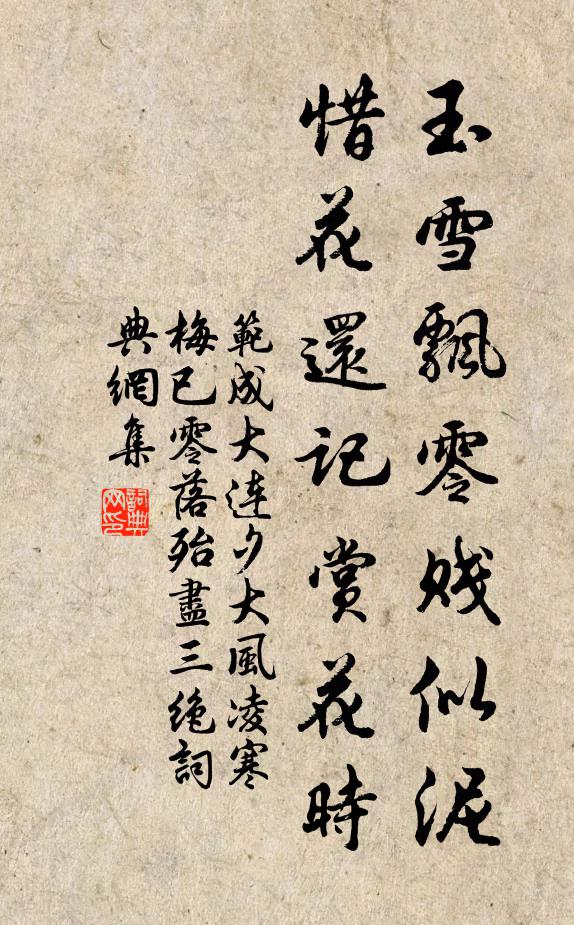 玉雪飄零賤似泥
惜花還記賞花時
範成大連夕大風凌寒
梅已零落殆盡三絶詞
典網集
詞典网印